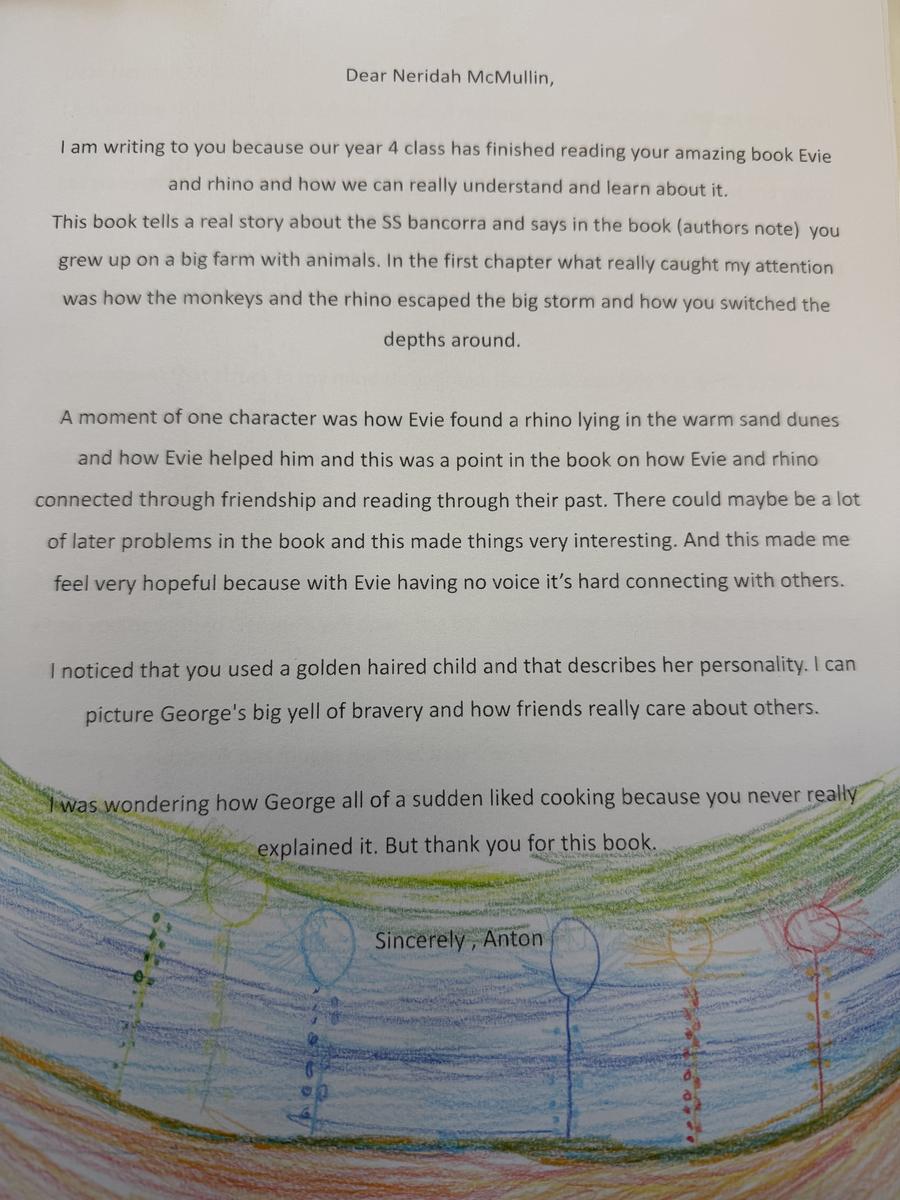 Dear Neridah McMullin,
I am writing to you because our year 4 class has finished reading your amazing book Evie
and rhino and how we can really understand and learn about it.
This book tells a real story about the SS bancorra and says in the book (authors note)  you
grew up on a big farm with animals. In the first chapter what really caught my attention
was how the monkeys and the rhino escaped the big storm and how you switched the
depths around.
A moment of one character was how Evie found a rhino lying in the warm sand dunes
and how Evie helped him and this was a point in the book on how Evie and rhino
connected through friendship and reading through their past. There could maybe be a lot
of later problems in the book and this made things very interesting. And this made me
feel very hopeful because with Evie having no voice it’s hard connecting with others.
I noticed that you used a golden haired child and that describes her personality. I can
picture George's big yell of bravery and how friends really care about others.
I was wondering how George all of a sudden liked cooking because you never really
explained it. But thank you for this book.
Sincerely , Anton